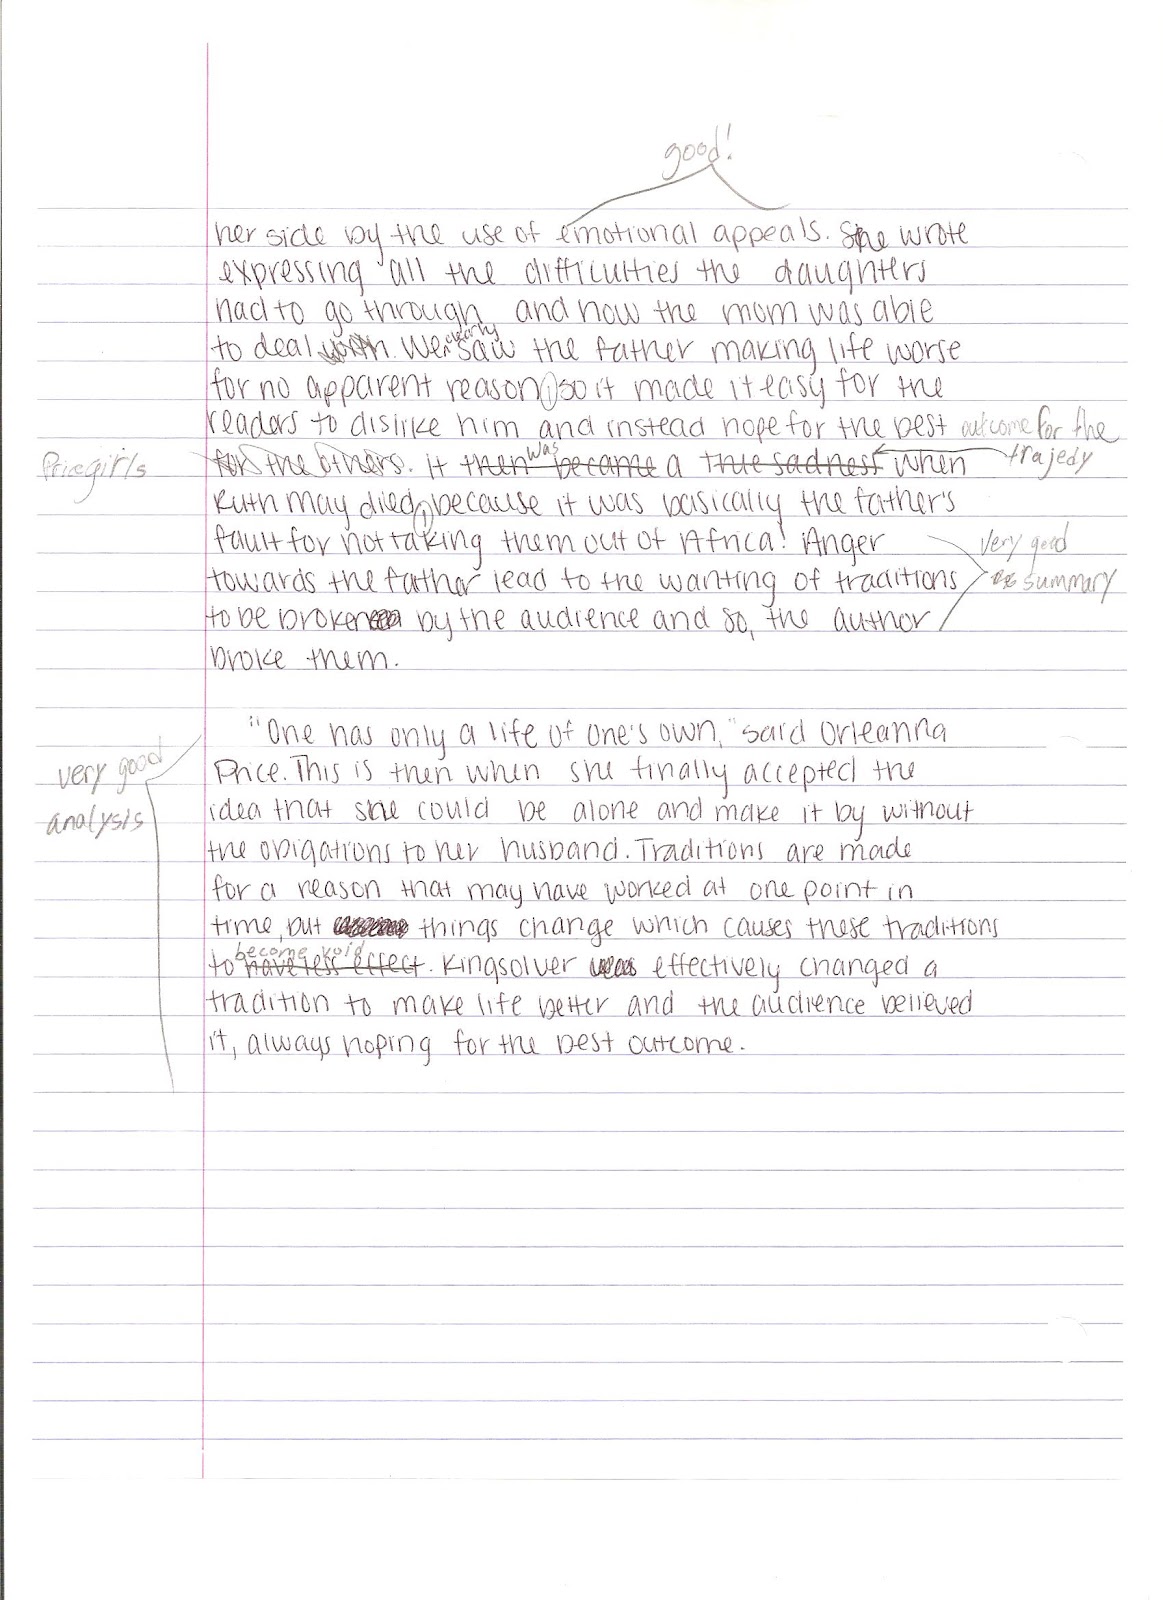 good!
her side by the use of emotional appeals. She wrote
expressing all the difficulties the daughters
had to go through and how the mom was able
to deal with. We clearly saw the father making life worse
for no apparent reason, so it made it easy for the
readers to dislike him and instead hope for the best outcome for the
Price girls for the others. it then became was a true sadness when trajedy
Ruth May died, because it was basically the father's
fault for not taking them out of Africa! Anger
towards the father lead to the wanting of traditions
to be broken by the audience and so, the author
broke them.
very good
summary
"One has only a life of one's own," said Orleanna
Price. This is then when she finally accepted the
idea that she could be alone and make it by without
the obigations to her husband. Traditions are made
for a reason that may have worked at one point in
time, but things change which causes these traditions
to have less effect become void. Kingsolver effectively changed a
tradition to make life better and the audience believed
it, always hoping for the best outcome.
very good
analysis